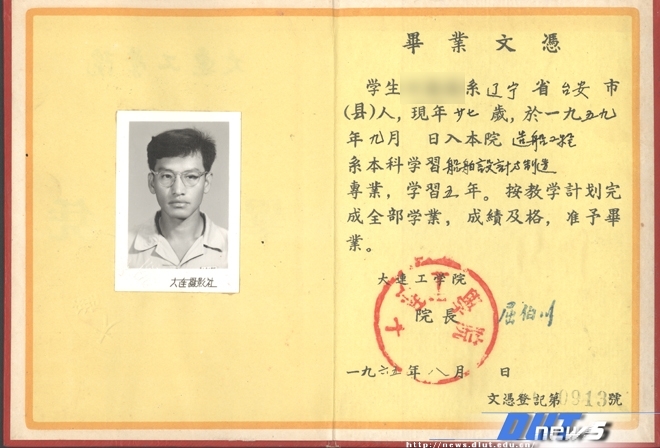 畢業文憑
学生 系辽宁省台安市
(县)人，現年廿七歲，於一九五九
年九月 日入本院造船工程
系本科学習船舶設計与制造
專業，学習五年。按教学計划完
成全部学業，成績及格，准予畢
業。
大連工学院
院長 屈伯川
一九六五年八月 日
文憑登記第0913號
大連攝影社
DLUT news
http://news.dlut.edu.cn